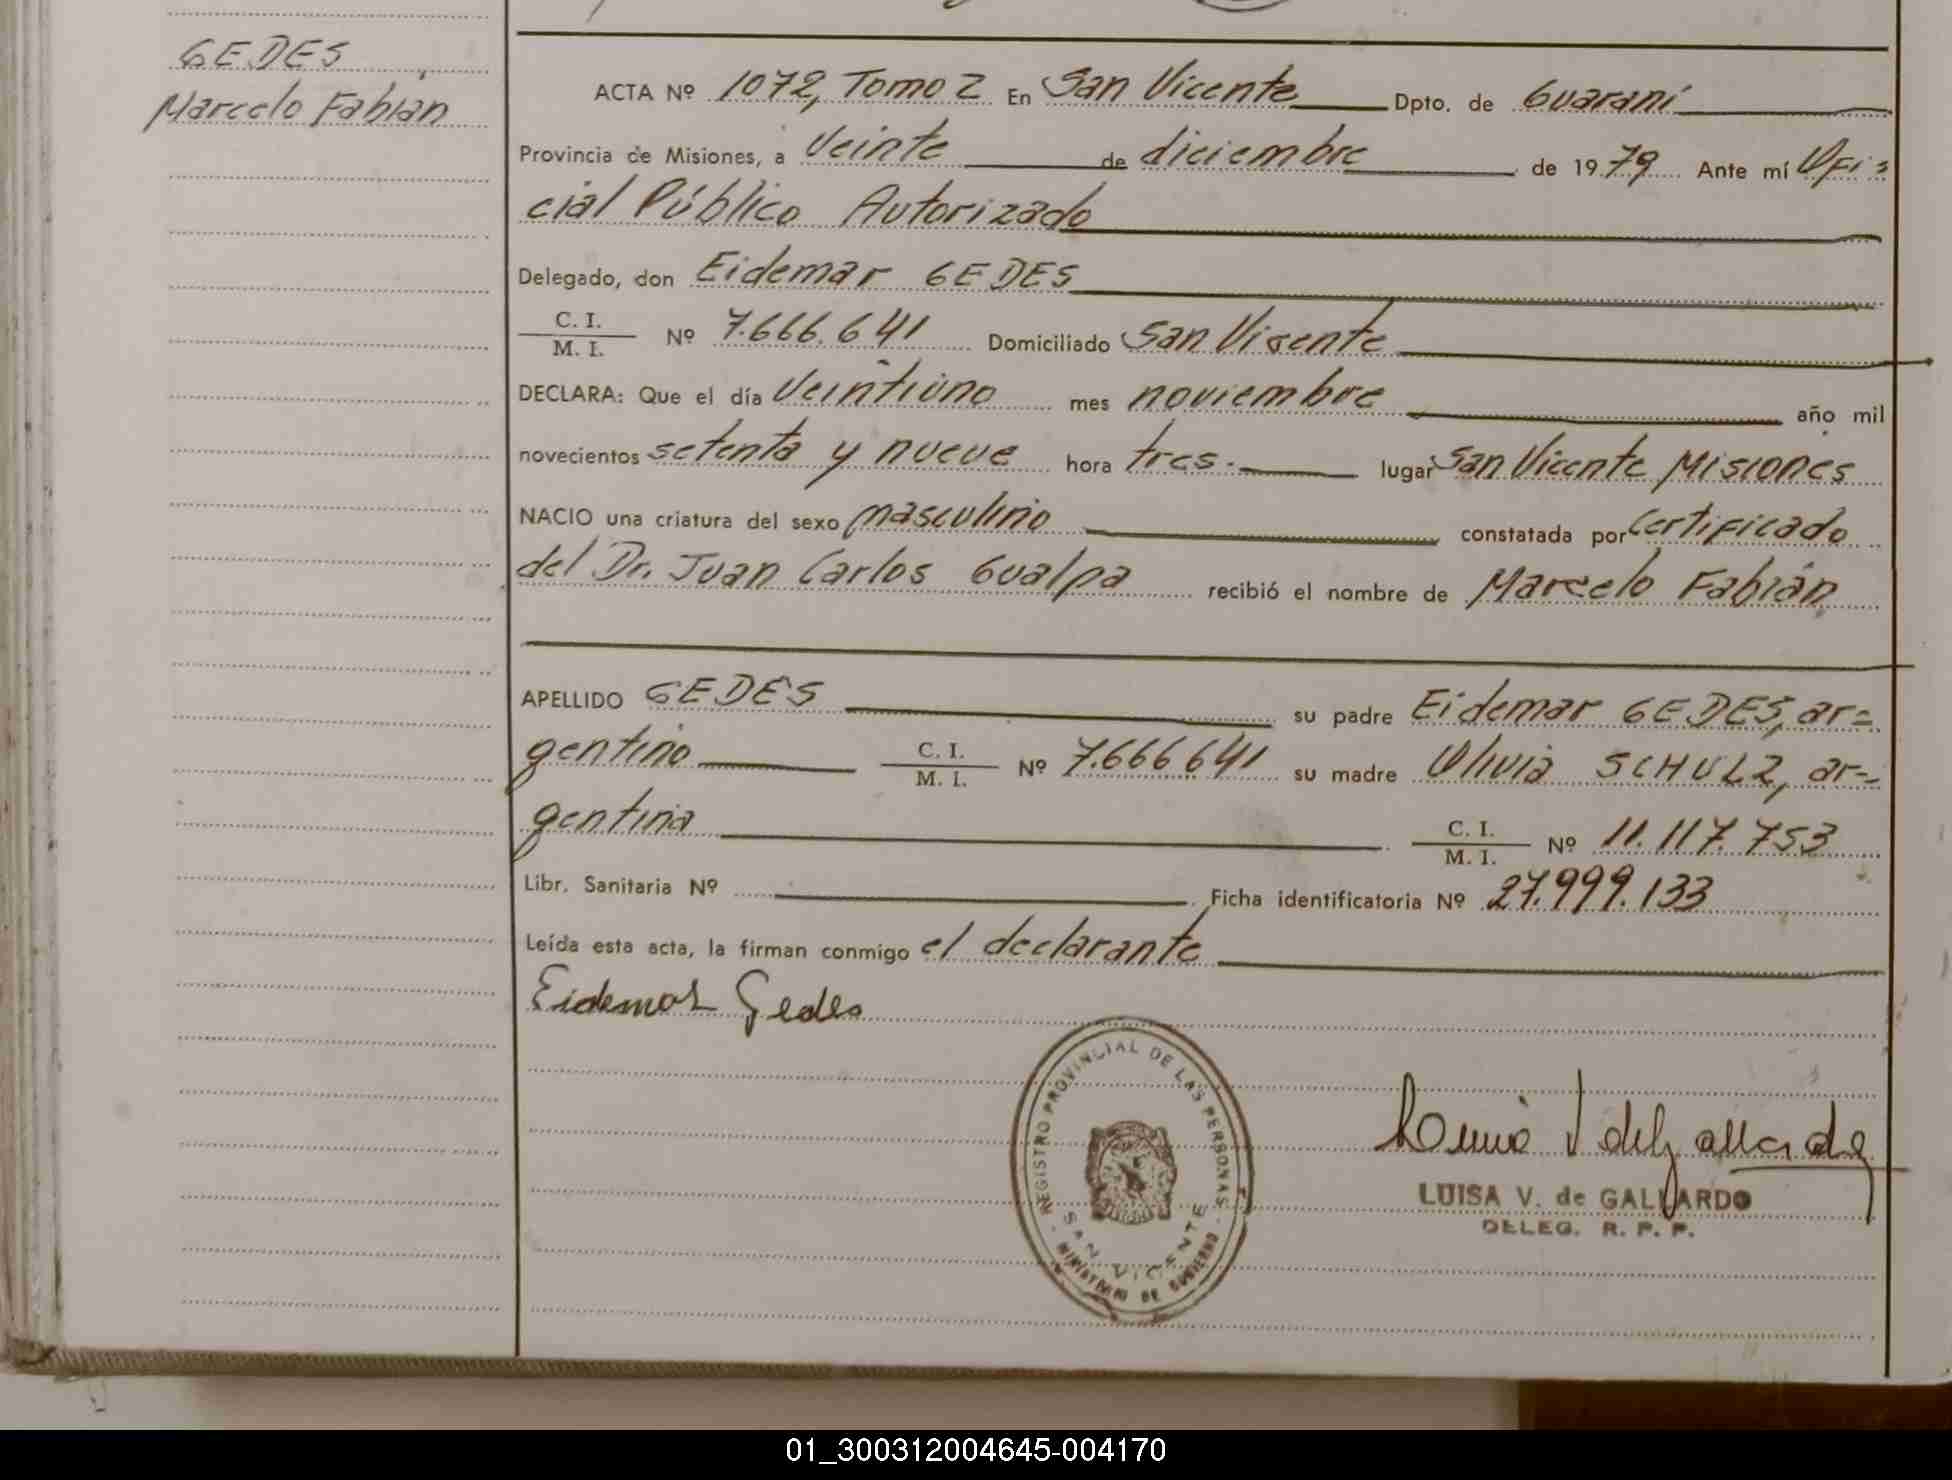 GEDES
Marcelo Fabian
ACTA Nº 1072, Tomo 2 En San Vicente Dpto. de Guaraní
Provincia de Misiones, a Veinte de diciembre de 1979 Ante mí Ofi=
cial Público Autorizado
Delegado, don Eidemar GEDES
C. I.
M. I. Nº 7.666.641 Domiciliado San Vicente
DECLARA: Que el día Veintiuno mes noviembre año mil
novecientos setenta y nueve hora tres.- lugar San Vicente Misiones
NACIO una criatura del sexo masculino constatada por Certificado
del Dr. Juan Carlos Gualpa recibió el nombre de Marcelo Fabián
APELLIDO GEDES su padre Eidemar GEDES, ar=
gentino C. I. M. I. Nº 7.666.641 su madre Olivia SCHULZ, ar=
gentina C. I. M. I. Nº 11.117.753
Libr. Sanitaria Nº Ficha identificatoria Nº 27.999.133
Leída esta acta, la firman conmigo el declarante
Eidemar Gedes
REGISTRO PROVINCIAL DE LAS PERSONAS
SAN VICENTE
MINISTERIO DE GOBIERNO
Luisa V de Gallardo
LUISA V. de GALLARDO
DELEG. R. P. P.
01_300312004645-004170